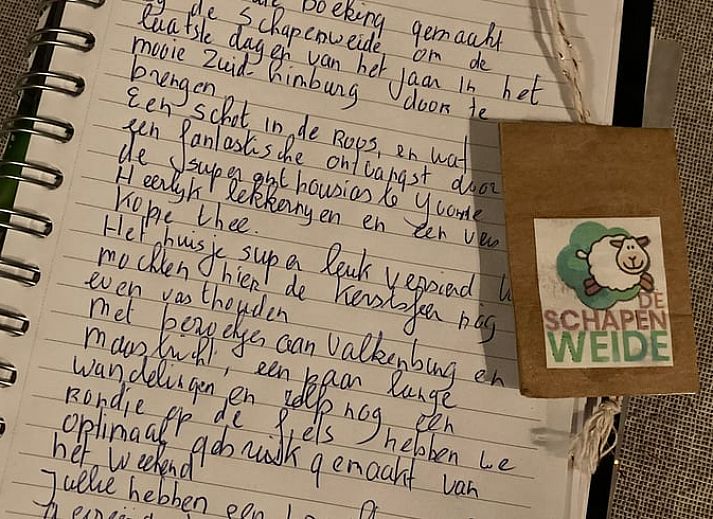 boeking gemaakt
de schapenweide om de
laatste dagen van het jaar in het
mooie Zuid-Limburg door te
brengen
Een schot in de Roos, en wat
een fantastische ontvangst door
de super enthousiaste Yvonne
Heerlijk lekkernyen en een vers
kopje thee.
Het huisje super leuk versierd
mochten hier de kerstsfeer nog
even vasthouden
met bezoekjes aan Valkenburg en
maastricht, een paar lange
wandelingen en zelfs nog een
Rondje op de fiets hebben we
optimaal gebruik gemaakt van
het weekend
Jullie hebben een
DE
SCHAPEN
WEIDE